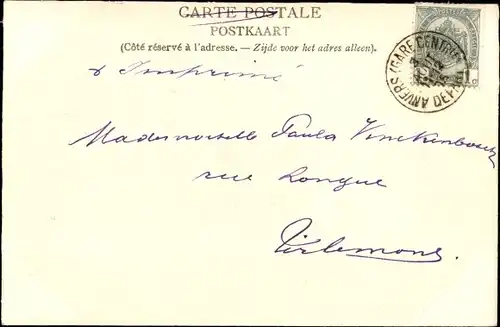 CARTE POSTALE
POSTKAART
(Côté réservé à l'adresse. — Zijde voor het adres alleen).
Imprimé
Mademoiselle Paula Vinckenbosch
rue Longue
Tirlemont
ANVERS (GARE CENTRALE) DEPART